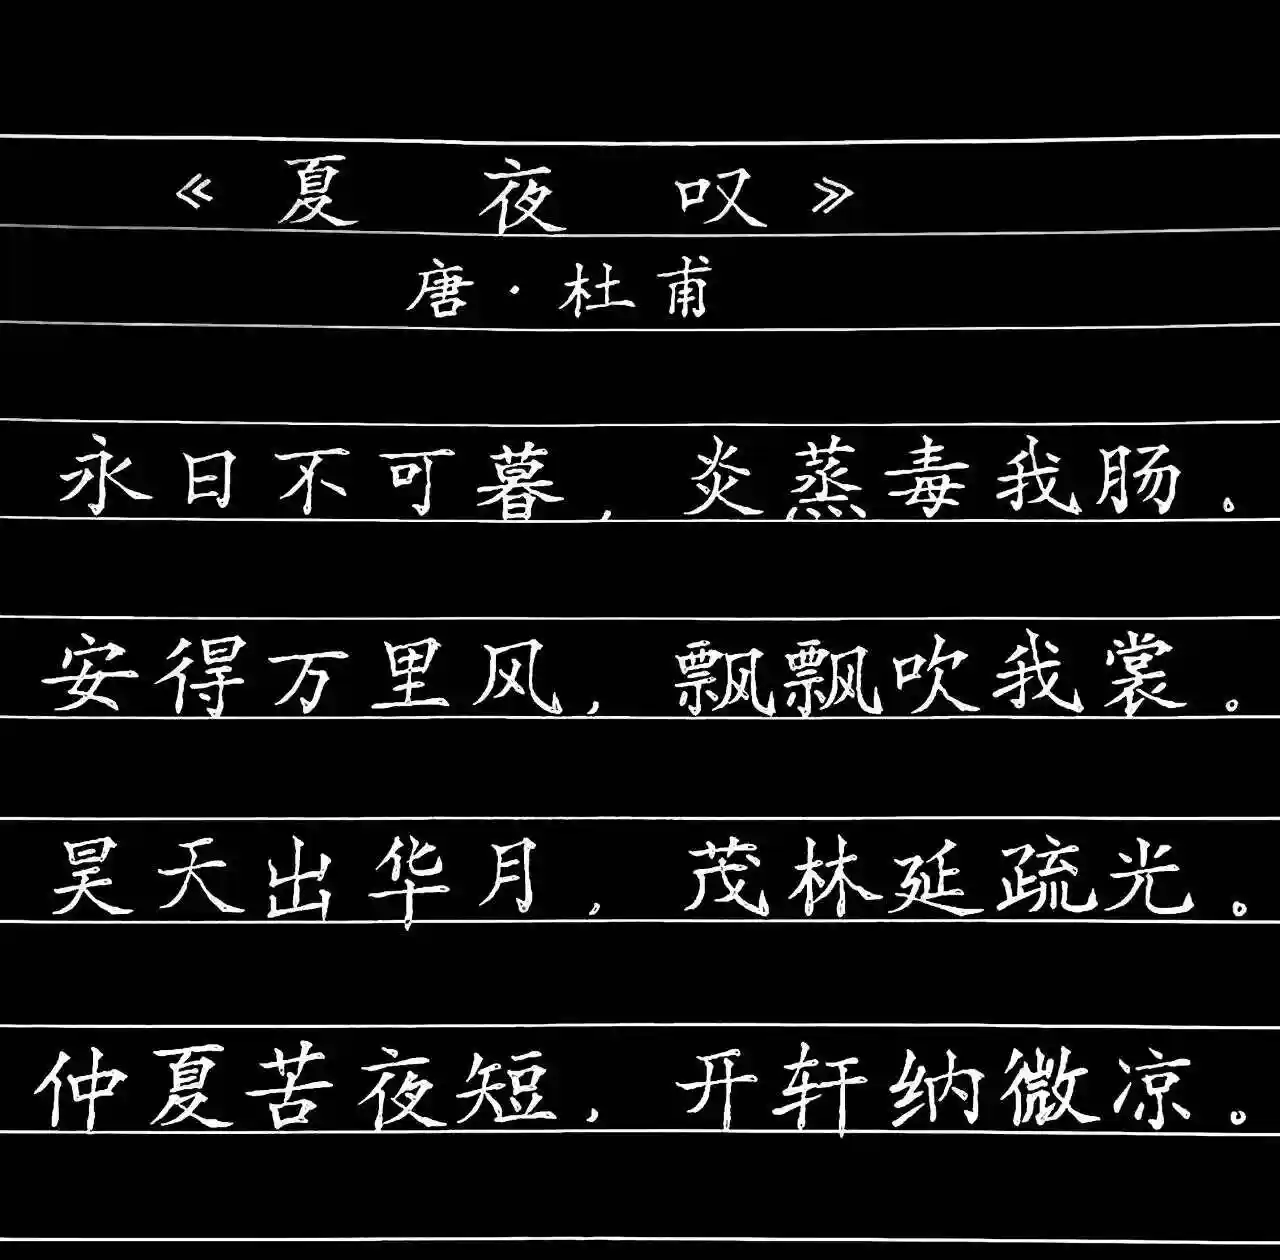 《夏夜叹》
唐·杜甫
永日不可暮，炎蒸毒我肠。
安得万里风，飘飘吹我裳。
昊天出华月，茂林延疏光。
仲夏苦夜短，开轩纳微凉。